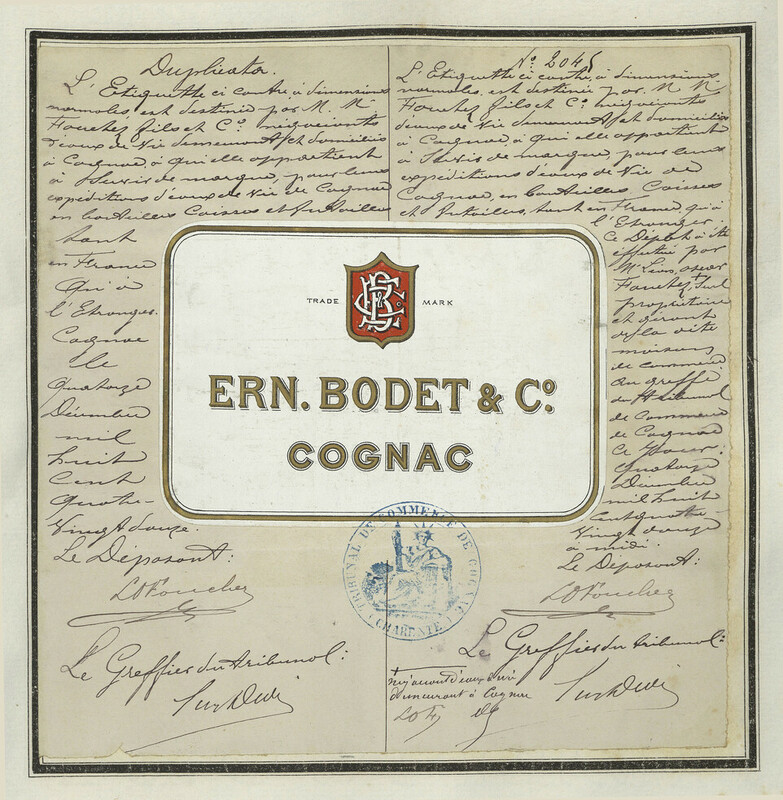 Duplicator.
L'Etiquette ci contre, à dimensions
normales, est destinée par M. M.
Fouchez fils et Cº. négociants
d'eaux de Vie demeurant et domiciliés
à Cognac, à qui elle appartient
à Servir de marque, pour leurs
expéditions d'eaux de Vie de Cognac
en bouteilles Caisses et futailles
tant
en France
Qu'à
l'Etranger.
Cognac
le
Quatorze
Décembre
mil
huit
Cent
Quatre-
Vingt douze.
Le Déposant:
LD Fouchez
Le Greffier du tribunal:
Nº. 2045
L'Etiquette ci contre, à dimensions
normales, est destinée par M. M.
Fouchez fils et Cº. négociants
d'eaux de Vie demeurant et domiciliés
à Cognac, à qui elle appartient
à Servir de marque, pour leurs
expéditions d'eaux de Vie de
Cognac, en bouteilles, Caisses
et futailles, tant en France, qu'à
l'Etranger.
Ce Dépôt a été
effectué par
Mr. Léon, oscar
Fouchez, + Seul
propriétaire
et gérant
de la dite
maison
de commerce
au greffe
du tribunal
de Commerce
de Cognac
Ce Jour:
Quatorze
Décembre
mil huit
Cent quatre
Vingt douze
à midi.
Le Déposant:
LD Fouchez
Le Greffier du tribunal:
+ négociant d'eaux de vie
demeurant à Cognac
TRADE MARK
ERN. BODET & Cº.
COGNAC
TRIBUNAL DE COMMERCE DE COGNAC
(CHARENTE)